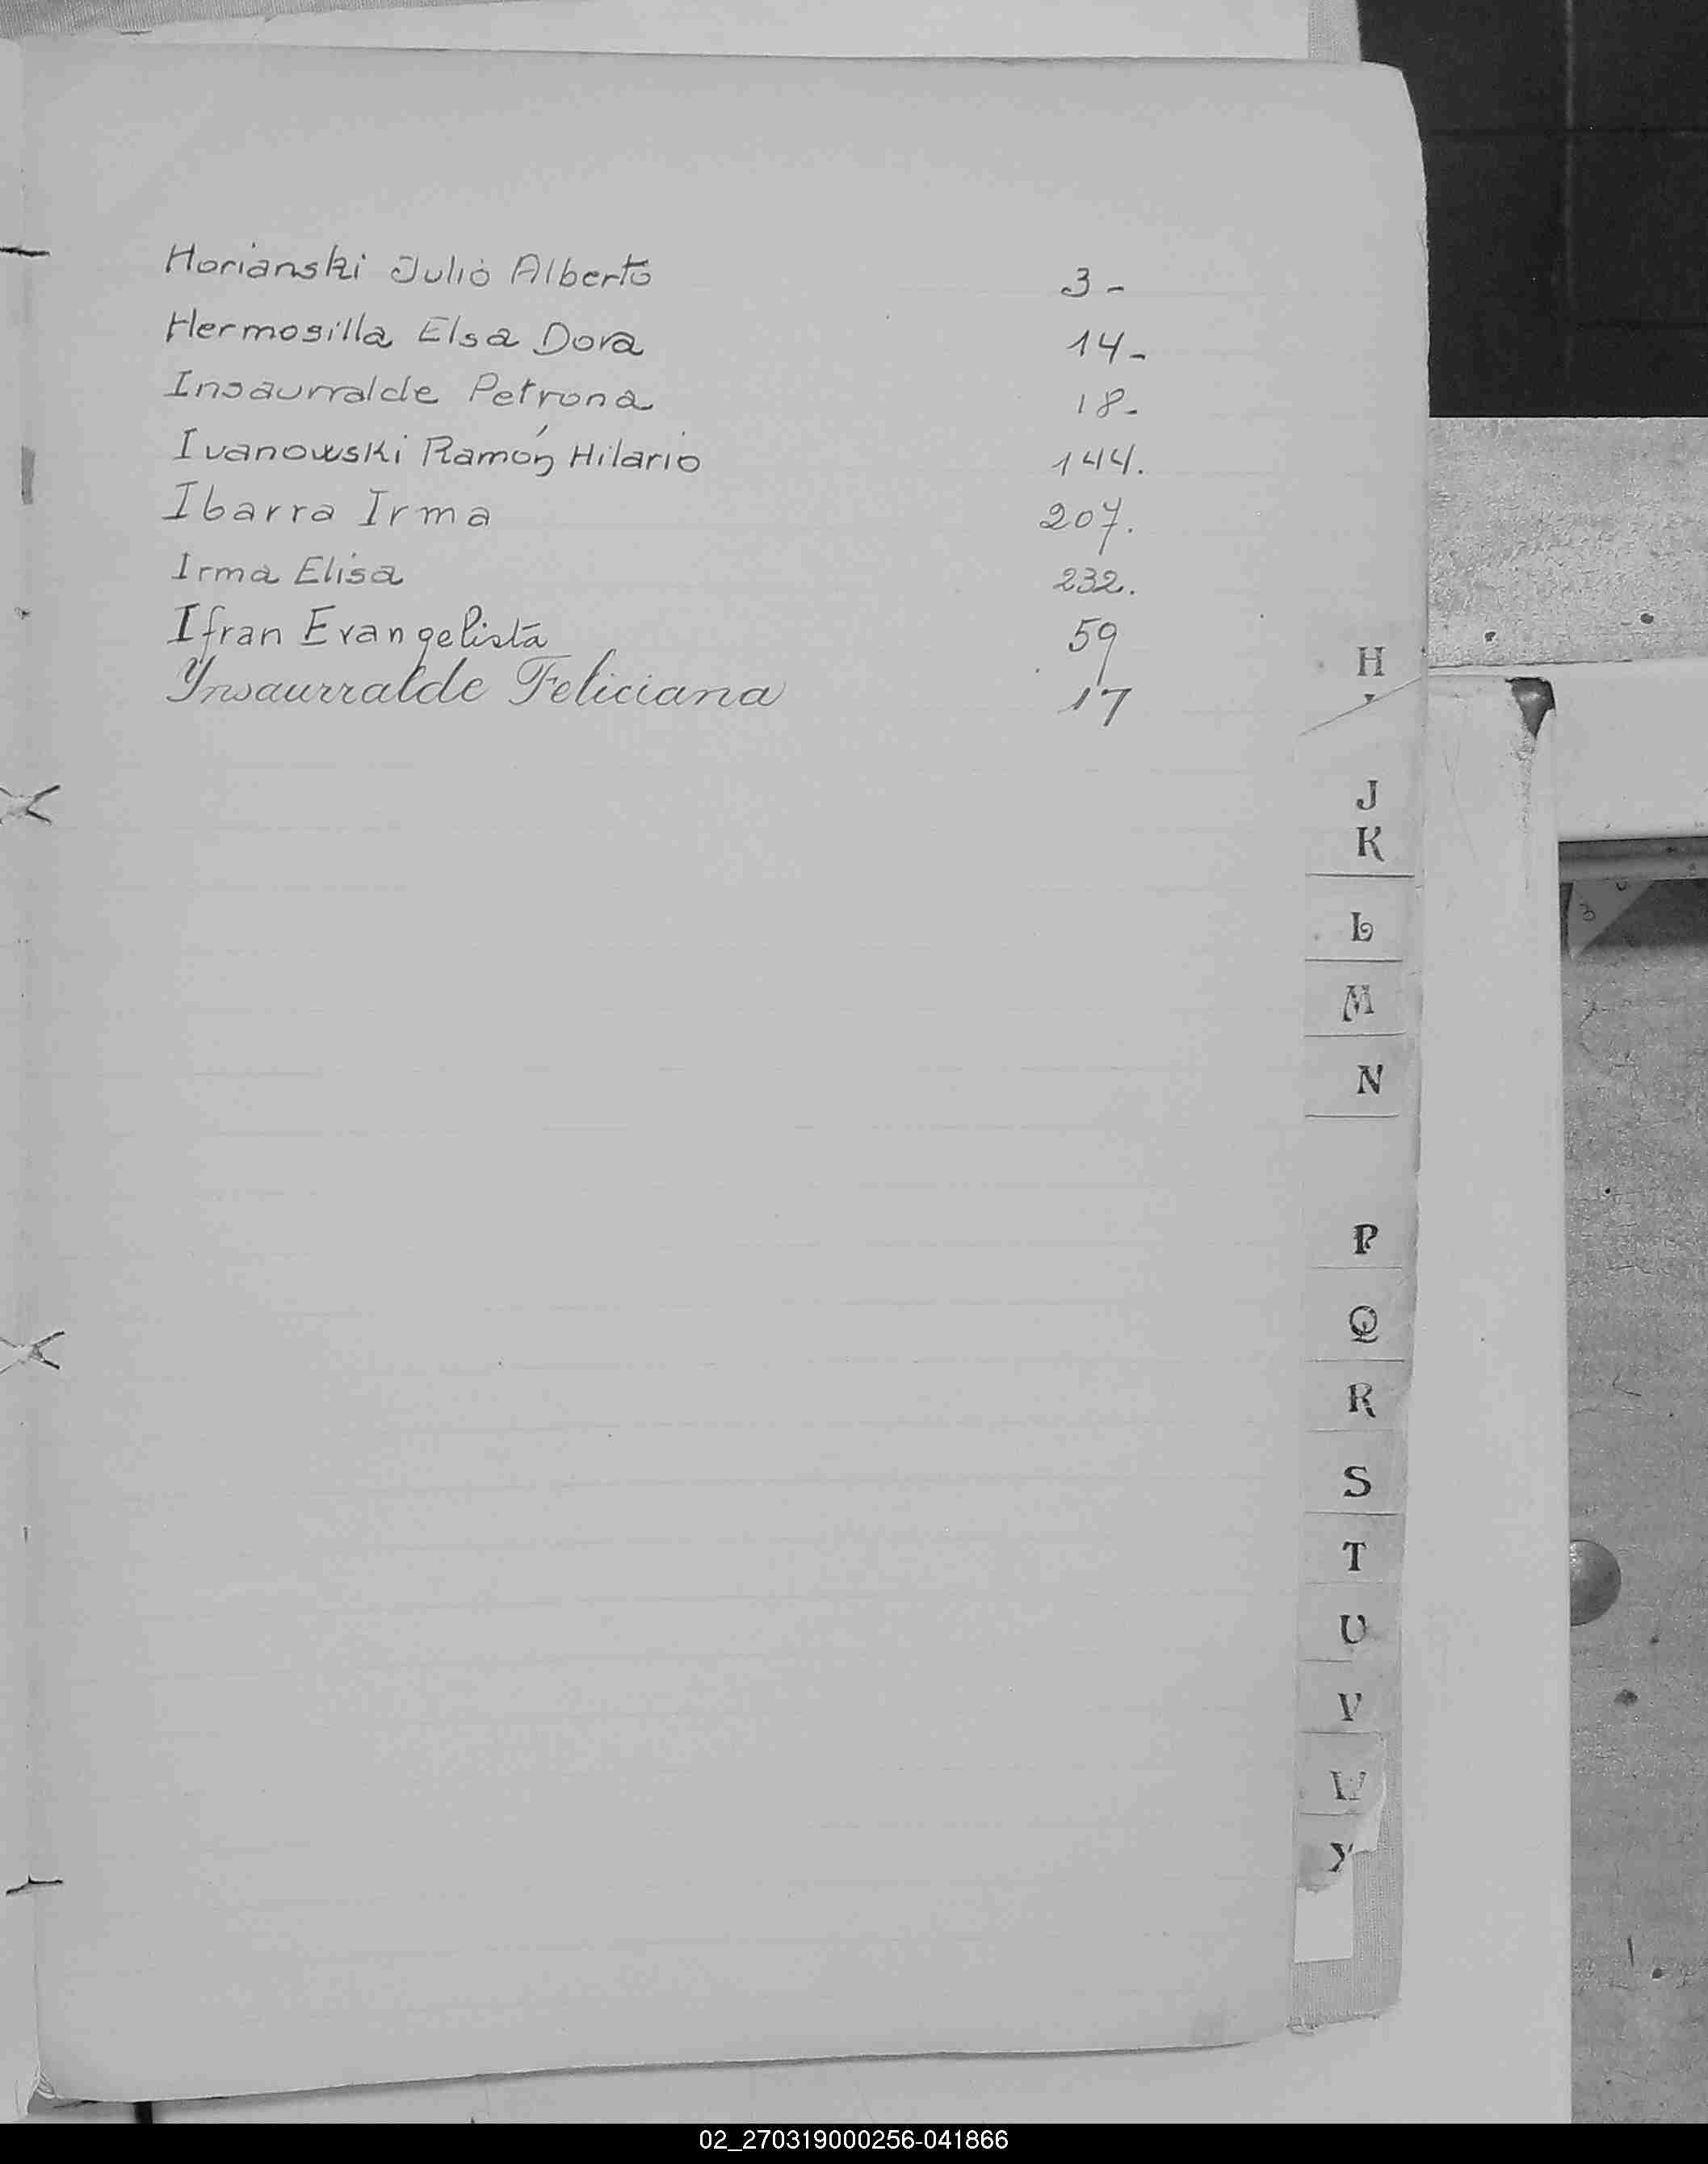 Horianski Julio Alberto 3-
Hermosilla Elsa Dora 14-
Insaurralde Petrona 18-
Ivanowski Ramón Hilario 144.
Ibarra Irma 207.
Irma Elisa 232.
Ifran Evangelista 59
Ynsaurralde Feliciana 17
H
J
K
L
M
N
P
Q
R
S
T
U
V
W
3
02_270319000256-041866